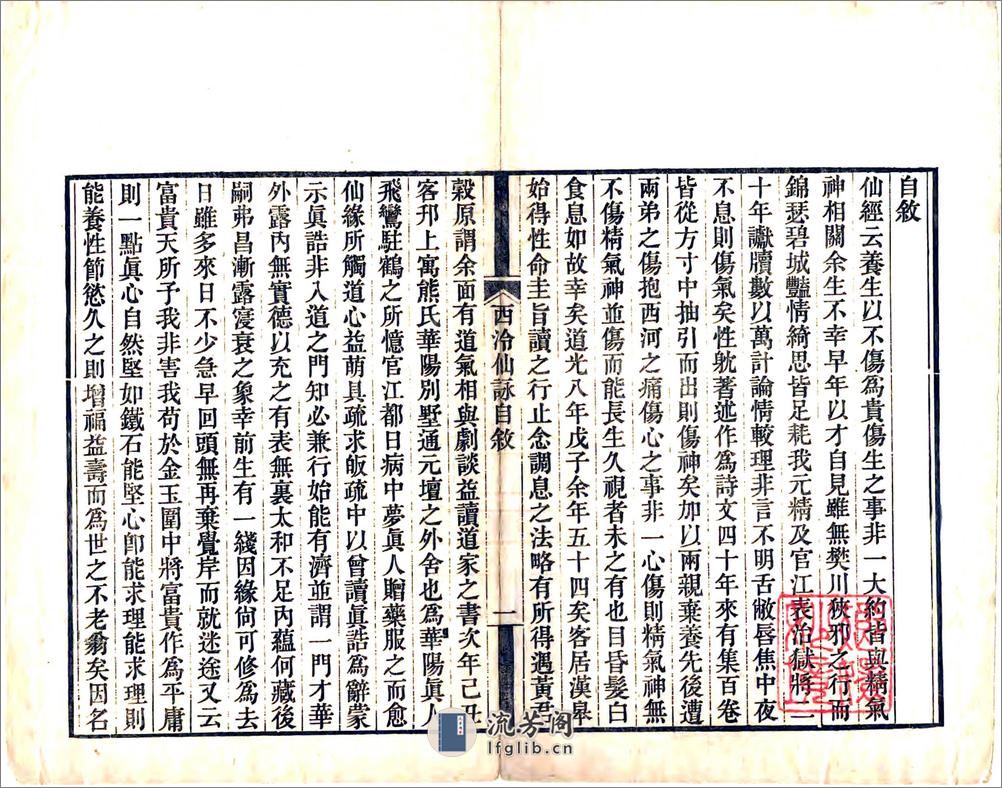 自敘
仙經云養生以不傷爲貴傷生之事非一大約皆與精氣
神相關余生不幸早年以才自見雖無樊川狹邪之行而
錦瑟碧城豔情綺思皆足耗我元精及官江表治獄將二
十年讞牘數以萬計論情較理非言不明舌敝唇焦中夜
不息則傷氣矣性躭著述作爲詩文四十年來有集百卷
皆從方寸中抽引而出則傷神矣加以兩親棄養先後遭
兩弟之傷抱西河之痛傷心之事非一心傷則精氣神無
不傷精氣神並傷而能長生久視者未之有也目昏髮白
食息如故幸矣道光八年戊子余年五十四矣客居漢皋
始得性命圭旨讀之行止念調息之法略有所得遇黃君
西泠仙詠自敘
一
穀原謂余面有道氣相與劇談益讀道家之書次年己丑
客邗上寓熊氏華陽別墅通元壇之外舍也爲華陽眞人
飛鸞駐鶴之所憶官江都日病中夢眞人贈藥服之而愈
仙緣所觸道心益萌具疏求皈疏中以曾讀眞誥爲辭蒙
示眞誥非入道之門知必兼行始能有濟並謂一門才華
外露內無實德以充之有表無裏太和不足內蘊何藏後
嗣弗昌漸露寖衰之象幸前生有一綫因緣尙可修爲去
日雖多來日不少急早回頭無再棄覺岸而就迷途又云
富貴天所予我非害我苟於金玉圍中將富貴作爲平庸
則一點眞心自然堅如鐵石能堅心卽能求理能求理則
能養性節慾久之則增福益壽而爲世之不老翁矣因名
流芳阁
lfglib.cn